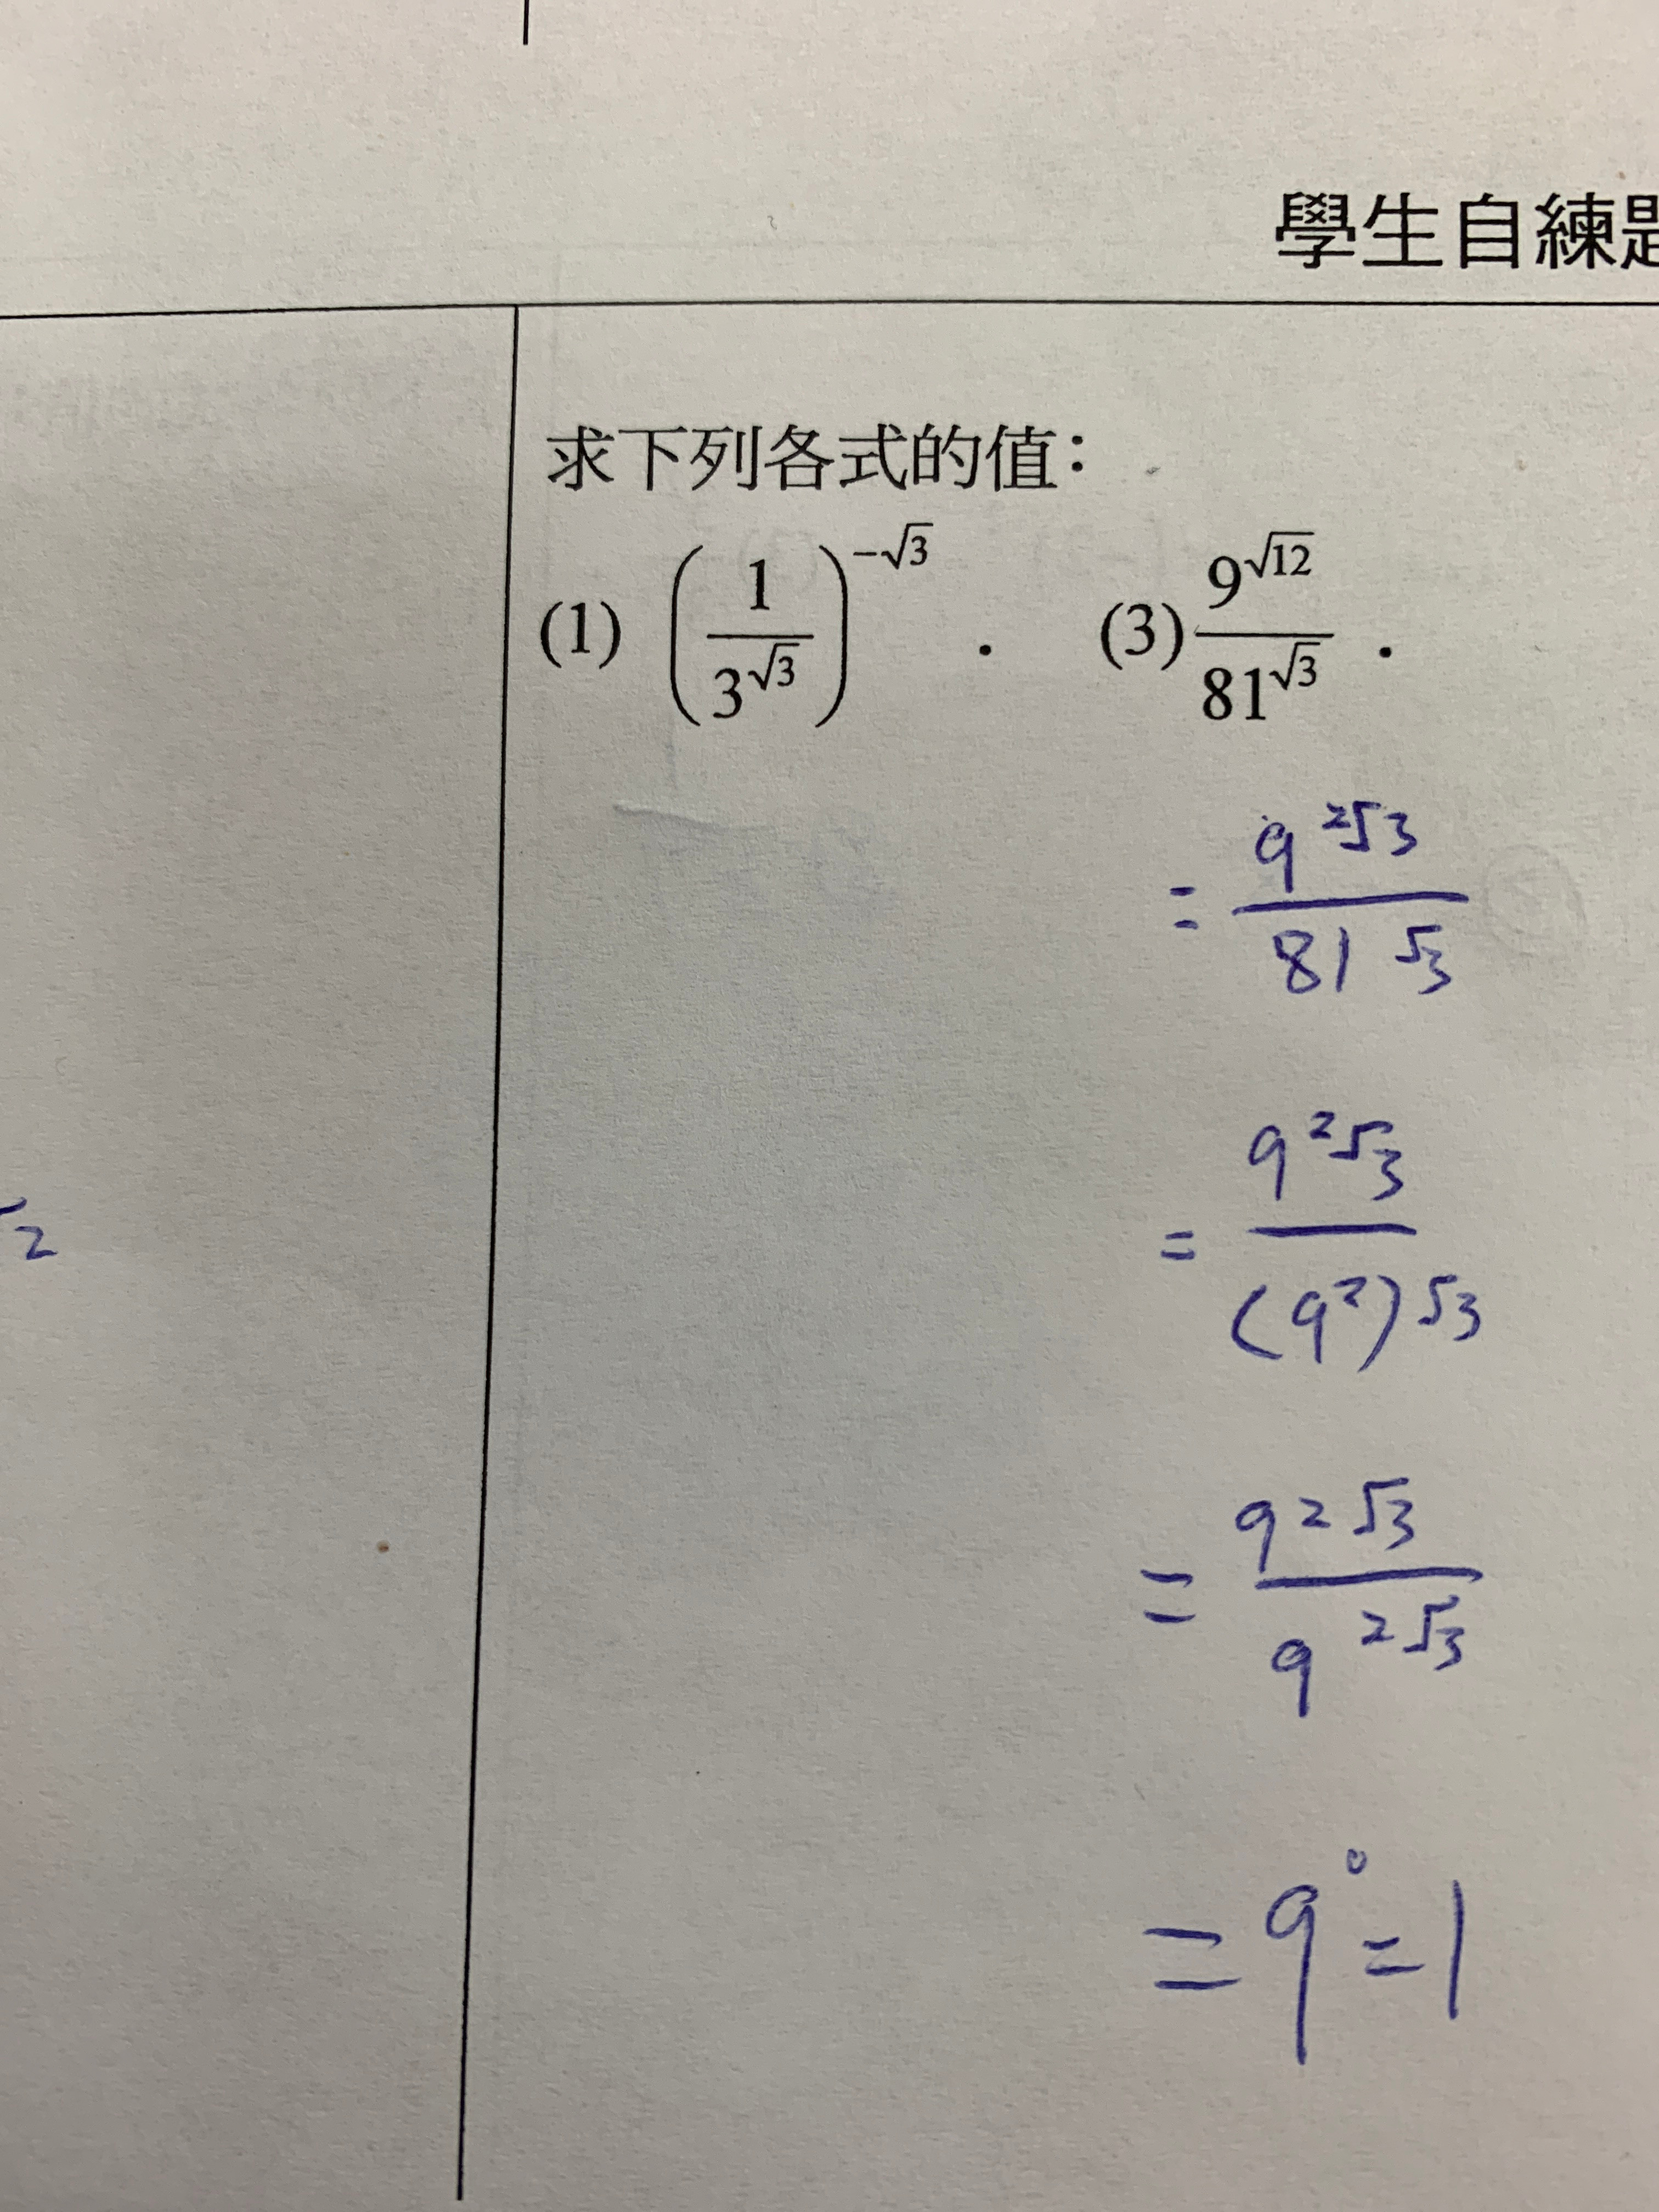 學生自練題
求下列各式的值：
(1) (1/3^√3)^-√3 . (3) 9^√12/81^√3 .
= 9^2√3/81^√3
= 9^2√3/(9^2)^√3
√2
= 9^2√3/9^2√3
= 9^0 = 1